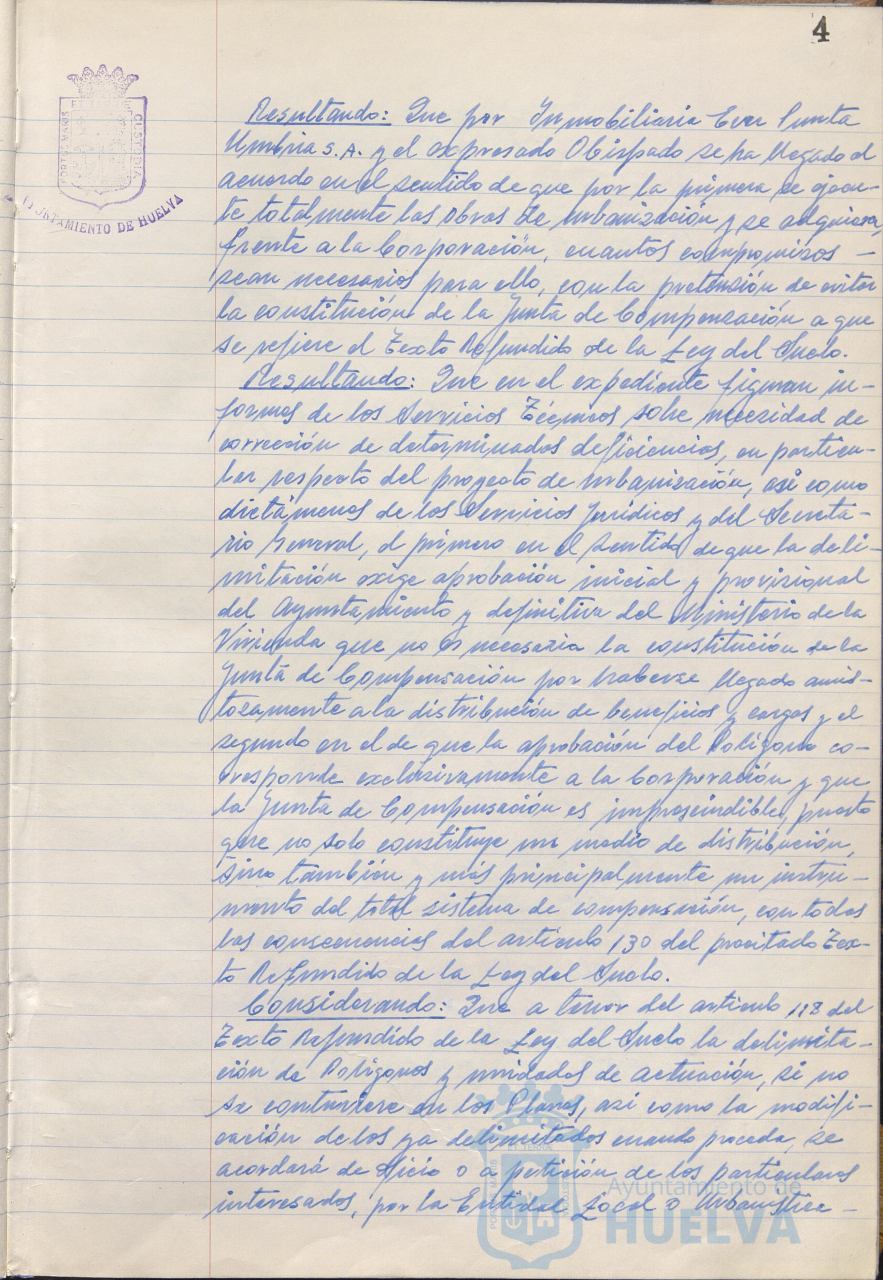 4
PORTUS MARIS ET TERRAE CUSTODIA
AYUNTAMIENTO DE HUELVA
Resultando: Que por Inmobiliaria Ever Punta
Umbria S.A. y el expresado Obispado se ha llegado al
acuerdo en el sentido de que por la primera se ejecu-
te totalmente las obras de urbanización y se adquiera,
frente a la Corporación, cuantos compromisos -
sean necesarios para ello, con la pretensión de evitar
la constitución de la Junta de Compensación a que
se refiere el Texto Refundido de la Ley del Suelo.
Resultando: Que en el expediente figuran in-
formes de los Servicios Técnicos sobre necesidad de
corrección de determinados deficiencias, en particu-
lar respecto del proyecto de urbanización, asi como
dictámenes de los Servicios Jurídicos y del Secreta-
rio General, el primero en el sentido de que la deli-
mitación exige aprobación inicial y provisional
del Ayuntamiento y definitiva del Ministerio de la
Vivienda que no es necesaria la constitución de la
Junta de Compensación por haberse llegado amis-
tosamente a la distribución de beneficios y cargas y el
segundo en el de que la aprobación del Polígono co-
rresponde exclusivamente a la Corporación y que
la Junta de Compensación es imprescindible, puesto
que no solo constituye un medio de distribución,
sino también y más principalmente un instru-
mento del total sistema de compensación, con todas
las consecuencias del artículo 130 del precitado Tex-
to Refundido de la Ley del Suelo.
Considerando: Que a tenor del artículo 118 del
Texto Refundido de la Ley del Suelo la delimita-
ción de Polígonos y unidades de actuación, si no
se contuviere en los Planos, asi como la modifi-
cación de los ya delimitados cuando proceda, se
acordará de oficio o a petición de los particulares
interesados, por la Entidad Local o Urbanística -
Ayuntamiento de
HUELVA